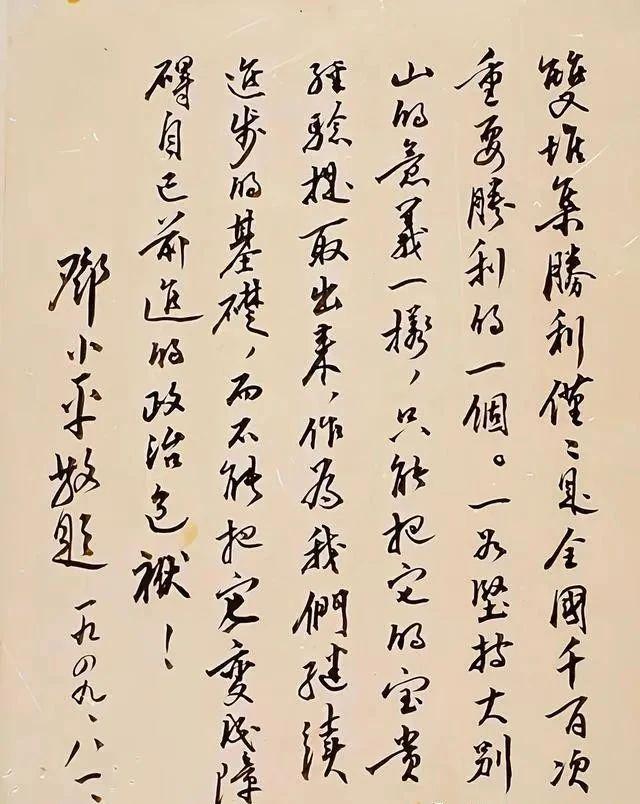 雙堆集勝利僅〻是全國千百次
重要勝利的一個。一如堅持大别
山的意義一樣，只能把它的宝贵
經驗提取出來，作為我們继續
進步的基礎，而不能把它變成障
碍自己前進的政治包袱！
鄧小平敬題 一九四九、八、一、